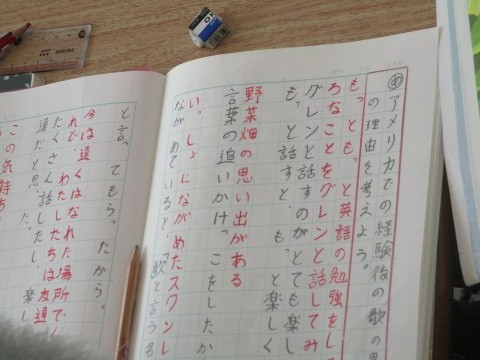 めアメリカでの経験後の歌の
の理由を考えよう。
もっともっと英語の勉強をし
ろなことをグレンと話してみ
グレンと話すのがとても楽し
もっと話すと、もっと楽しく
野菜畑の思い出がある
言葉の追いかけっこをしたか
い。しょにながめたスワンレ
ながめていると、「歌と言うる
と言ってもう。たから。
今は遠くはなれた場所で
れど、わたしたちは友達
たくさん話したし、楽し
達だと思った。
この気持ち